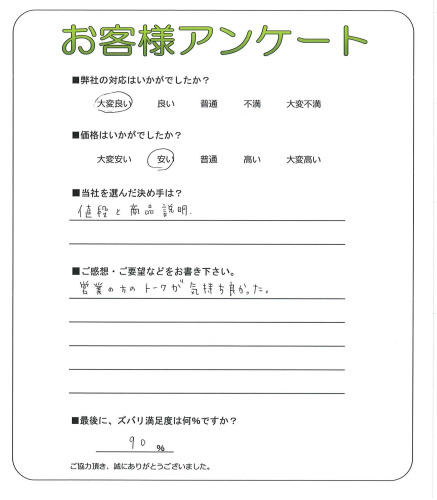 お客様アンケート
■弊社の対応はいかがでしたか？
大変良い 良い 普通 不満 大変不満
■価格はいかがでしたか？
大変安い 安い 普通 高い 大変高い
■当社を選んだ決め手は？
値段と商品説明.
■ご感想・ご要望などをお書き下さい。
営業の方のトークが気持ち良かった。
■最後に、ズバリ満足度は何％ですか？
90 %
ご協力頂き、誠にありがとうございました。